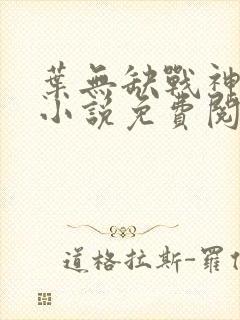 葉無缺戰神
小說免費閱
道格拉斯-羅